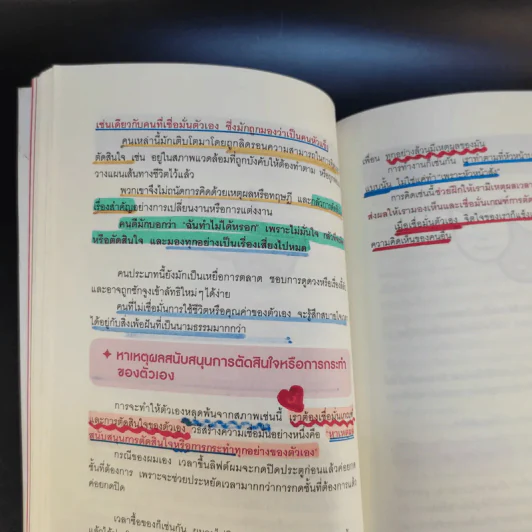 เช่นเดียวกับคนที่เชื่อมั่นตัวเอง ซึ่งมักถูกมองว่าเป็นคนหัวแข็ง
คนเหล่านี้มักเติบโตมาโดยถูกลิดรอนความสามารถในการ
ตัดสินใจ เช่น อยู่ในสภาพแวดล้อมที่ถูกบังคับให้ต้องทำตาม หรือถูก
วางแผนเส้นทางชีวิตไว้แล้ว
พวกเขาจึงไม่ถนัดการคิดด้วยเหตุผลหรือทฤษฎี และ
เรื่องสำคัญอย่างการเปลี่ยนงานหรือการแต่งงาน
คนดีมักบอกว่า "ฉันทำไม่ได้หรอก" เพราะไม่มั่นใจ
หรือตัดสินใจ และมองทุกอย่างเป็นเรื่องเสี่ยงไปหมด
คนประเภทนี้ยังมักเป็นเหยื่อการตลาด ชอบการดูดวงหรือ
และอาจถูกชักจูงเข้าลัทธิใหม่ๆ ได้ง่าย
คนที่ไม่เชื่อมั่นการใช้ชีวิตหรือคุณค่าของตัวเอง จะรู้สึกสบายใจ
ได้อยู่กับสิ่งเพ้อฝันที่เป็นนามธรรมมากกว่า
+ หาเหตุผลสนับสนุนการตัดสินใจหรือการกระทำ
ของตัวเอง
การจะทำให้ตัวเองหลุดพ้นจากสภาพเช่นนี้ เราต้องเชื่อมั่น
และการตัดสินใจของตัวเอง วิธีสร้างความเชื่อมั่นอย่างหนึ่งคือ "หาเหตุผล
สนับสนุนการตัดสินใจหรือการกระทำทุกอย่างของตัวเอง"
กรณีของผมเอง เวลาขึ้นลิฟต์ผมจะกดปิดประตูก่อนแล้วค่อยกด
ชั้นที่ต้องการ เพราะจะช่วยประหยัดเวลามากกว่าการกดชั้นที่ต้องการแล้ว
ค่อยกดปิด
เวลาซื้อของก็เช่นกัน
เพื่อน ทุกอย่างล้วนมีเหตุผลของมัน
การทำงานก็เช่นกัน
แบบนั้น ไม่ใช่แค่ทำเพราะหัวหน้าสั่ง
การคิดเช่นนี้ช่วยฝึกให้เรามีเหตุผล
ส่งผลให้เรามองเห็นและเชื่อมั่นเกณฑ์การ
เมื่อเชื่อมั่นตัวเอง จิตใจของเราก็
ความคิดเห็นของคนอื่น